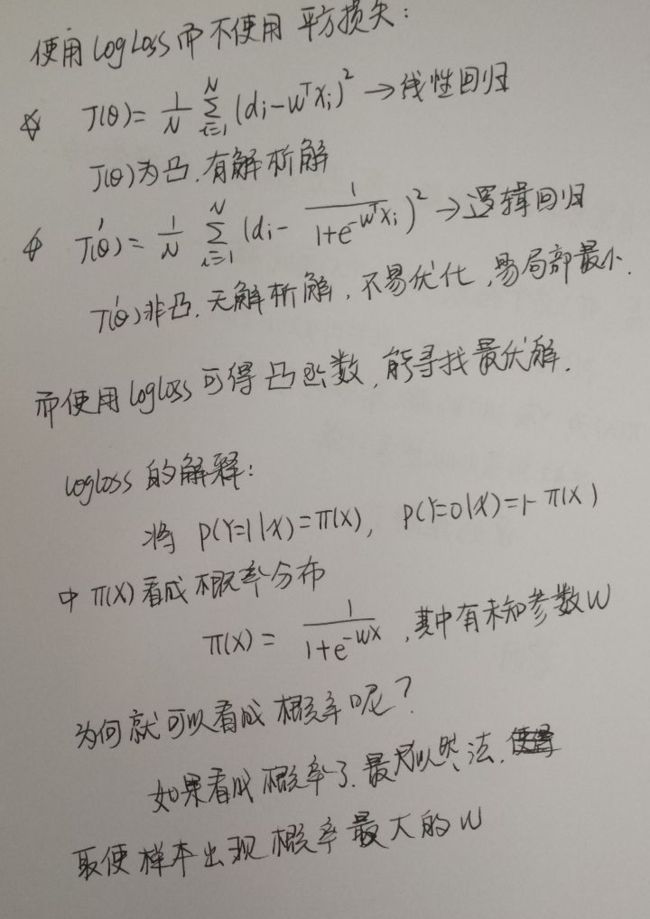 使用logLoss而不使用 平方损失:
☆ J(θ) = 1/N ∑_{i=1}^{N} (di - w^T xi)^2 → 线性回归
J(θ)为凸,有解析解
☆ J'(θ) = 1/N ∑_{i=1}^{N} (di - 1/(1+e^{-w^T xi}))^2 → 逻辑回归
J'(θ)非凸,无解析解,不易优化,易局部最小.
而使用logLoss可得凸函数,能寻找最优解.
logLoss的解释:
将 P(Y=1|X)=π(X), P(Y=0|X)=1-π(X)
中π(X)看成概率分布
π(X) = 1/(1+e^{-wx}), 其中有未知参数W
为何就可以看成概率呢?
如果看成概率了,最大似然法,
取使样本出现概率最大的W